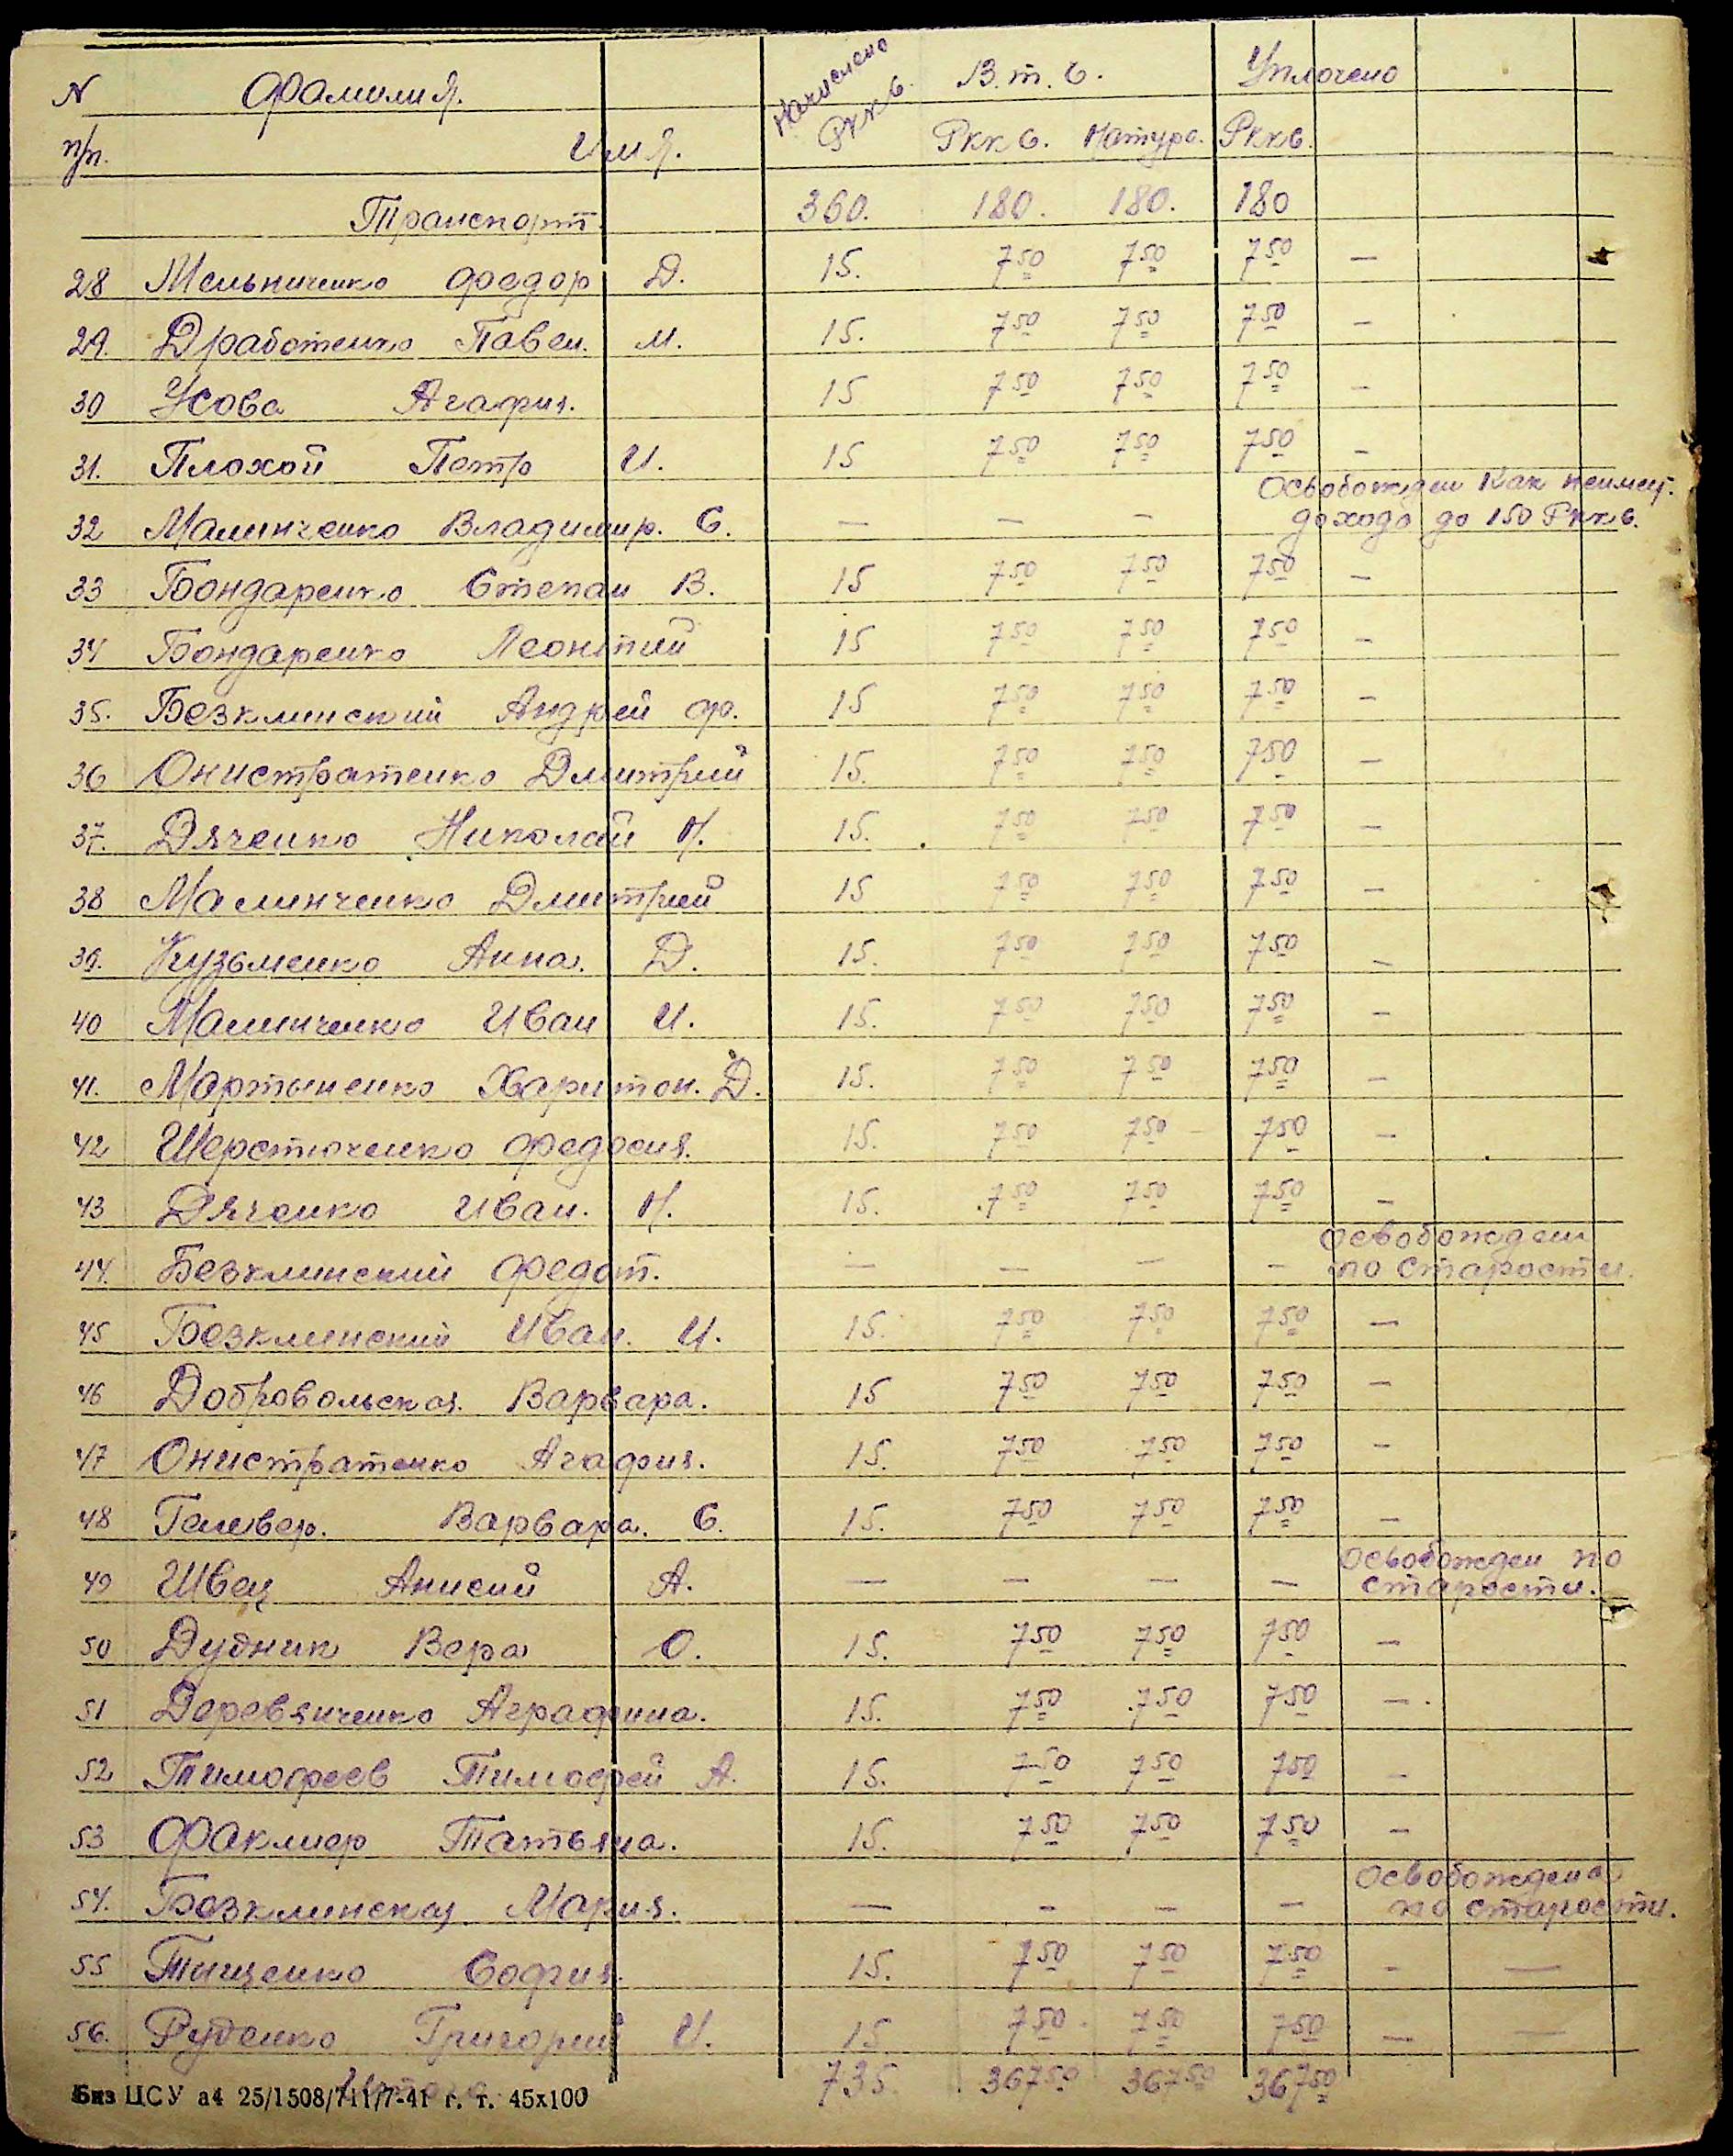 N Фамилия. Начислено Ркк в. В. т. ч. Уплочено
п/п. Имя. Ркк в. Натура. Ркк в.
Транспорт. 360. 180. 180. 180
28 Мельниченко Федор Д. 15. 7 50 7 50 7 50 —
29. Дработенко Павел. М. 15. 7 50 7 50 7 50 —
30 Усова Агафия. 15 7 50 7 50 7 50 —
31. Плохой Петр И. 15 7 50 7 50 7 50 —
Освобожден как неимец.
32 Малинченко Владимир. С. — — — дохода до 150 Ркк в.
33 Бондаренко Степан В. 15 7 50 7 50 7 50 —
34 Бондаренко Леонтий 15 7 50 7 50 7 50 —
35. Безклинский Андрей Ф. 15 7 50 7 50 7 50 —
36 Онистратенко Дмитрий 15. 7 50 7 50 7 50 —
37. Дяченко Николай Н. 15. 7 50 7 50 7 50 —
38 Малинченко Дмитрий 15 7 50 7 50 7 50 —
39. Кузьменко Анна. Д. 15. 7 50 7 50 7 50 —
40 Малинченко Иван И. 15. 7 50 7 50 7 50 —
41. Мартыненко Харитон. Д. 15. 7 50 7 50 7 50 —
42 Шерстюченко Федосия. 15. 7 50 7 50 7 50 —
43 Дяченко Иван. Н. 15. 7 50 7 50 7 50 —
освобожден
44. Безклинский Федот. — — — — по старости.
45 Безклинский Иван. И. 15. 7 50 7 50 7 50 —
46 Добровольская. Варвара. 15 7 50 7 50 7 50 —
47 Онистратенко Агафия. 15. 7 50 7 50 7 50 —
48 Гелевер. Варвара. С. 15. 7 50 7 50 7 50 —
освобожден по
49 Швец Анисий А. — — — — старости.
50 Дудник Вера О. 15. 7 50 7 50 7 50 —
51 Деревянченко Аграфина. 15. 7 50 7 50 7 50 —.
52 Тимофеев Тимофей А. 15. 7 50 7 50 7 50 —
53 Факлиер Татьяна. 15. 7 50 7 50 7 50 —
освобождена
54. Безклинская Мария. — — — — по старости.
55 Тищенко София. 15. 7 50 7 50 7 50 — —
56. Руденко Григорий И. 15 7 50 7 50 7 50 — —
Итого 735. 367 50 367 50 367 50
Биз ЦСУ а4 25/1508/711/7-41 г. т. 45х100